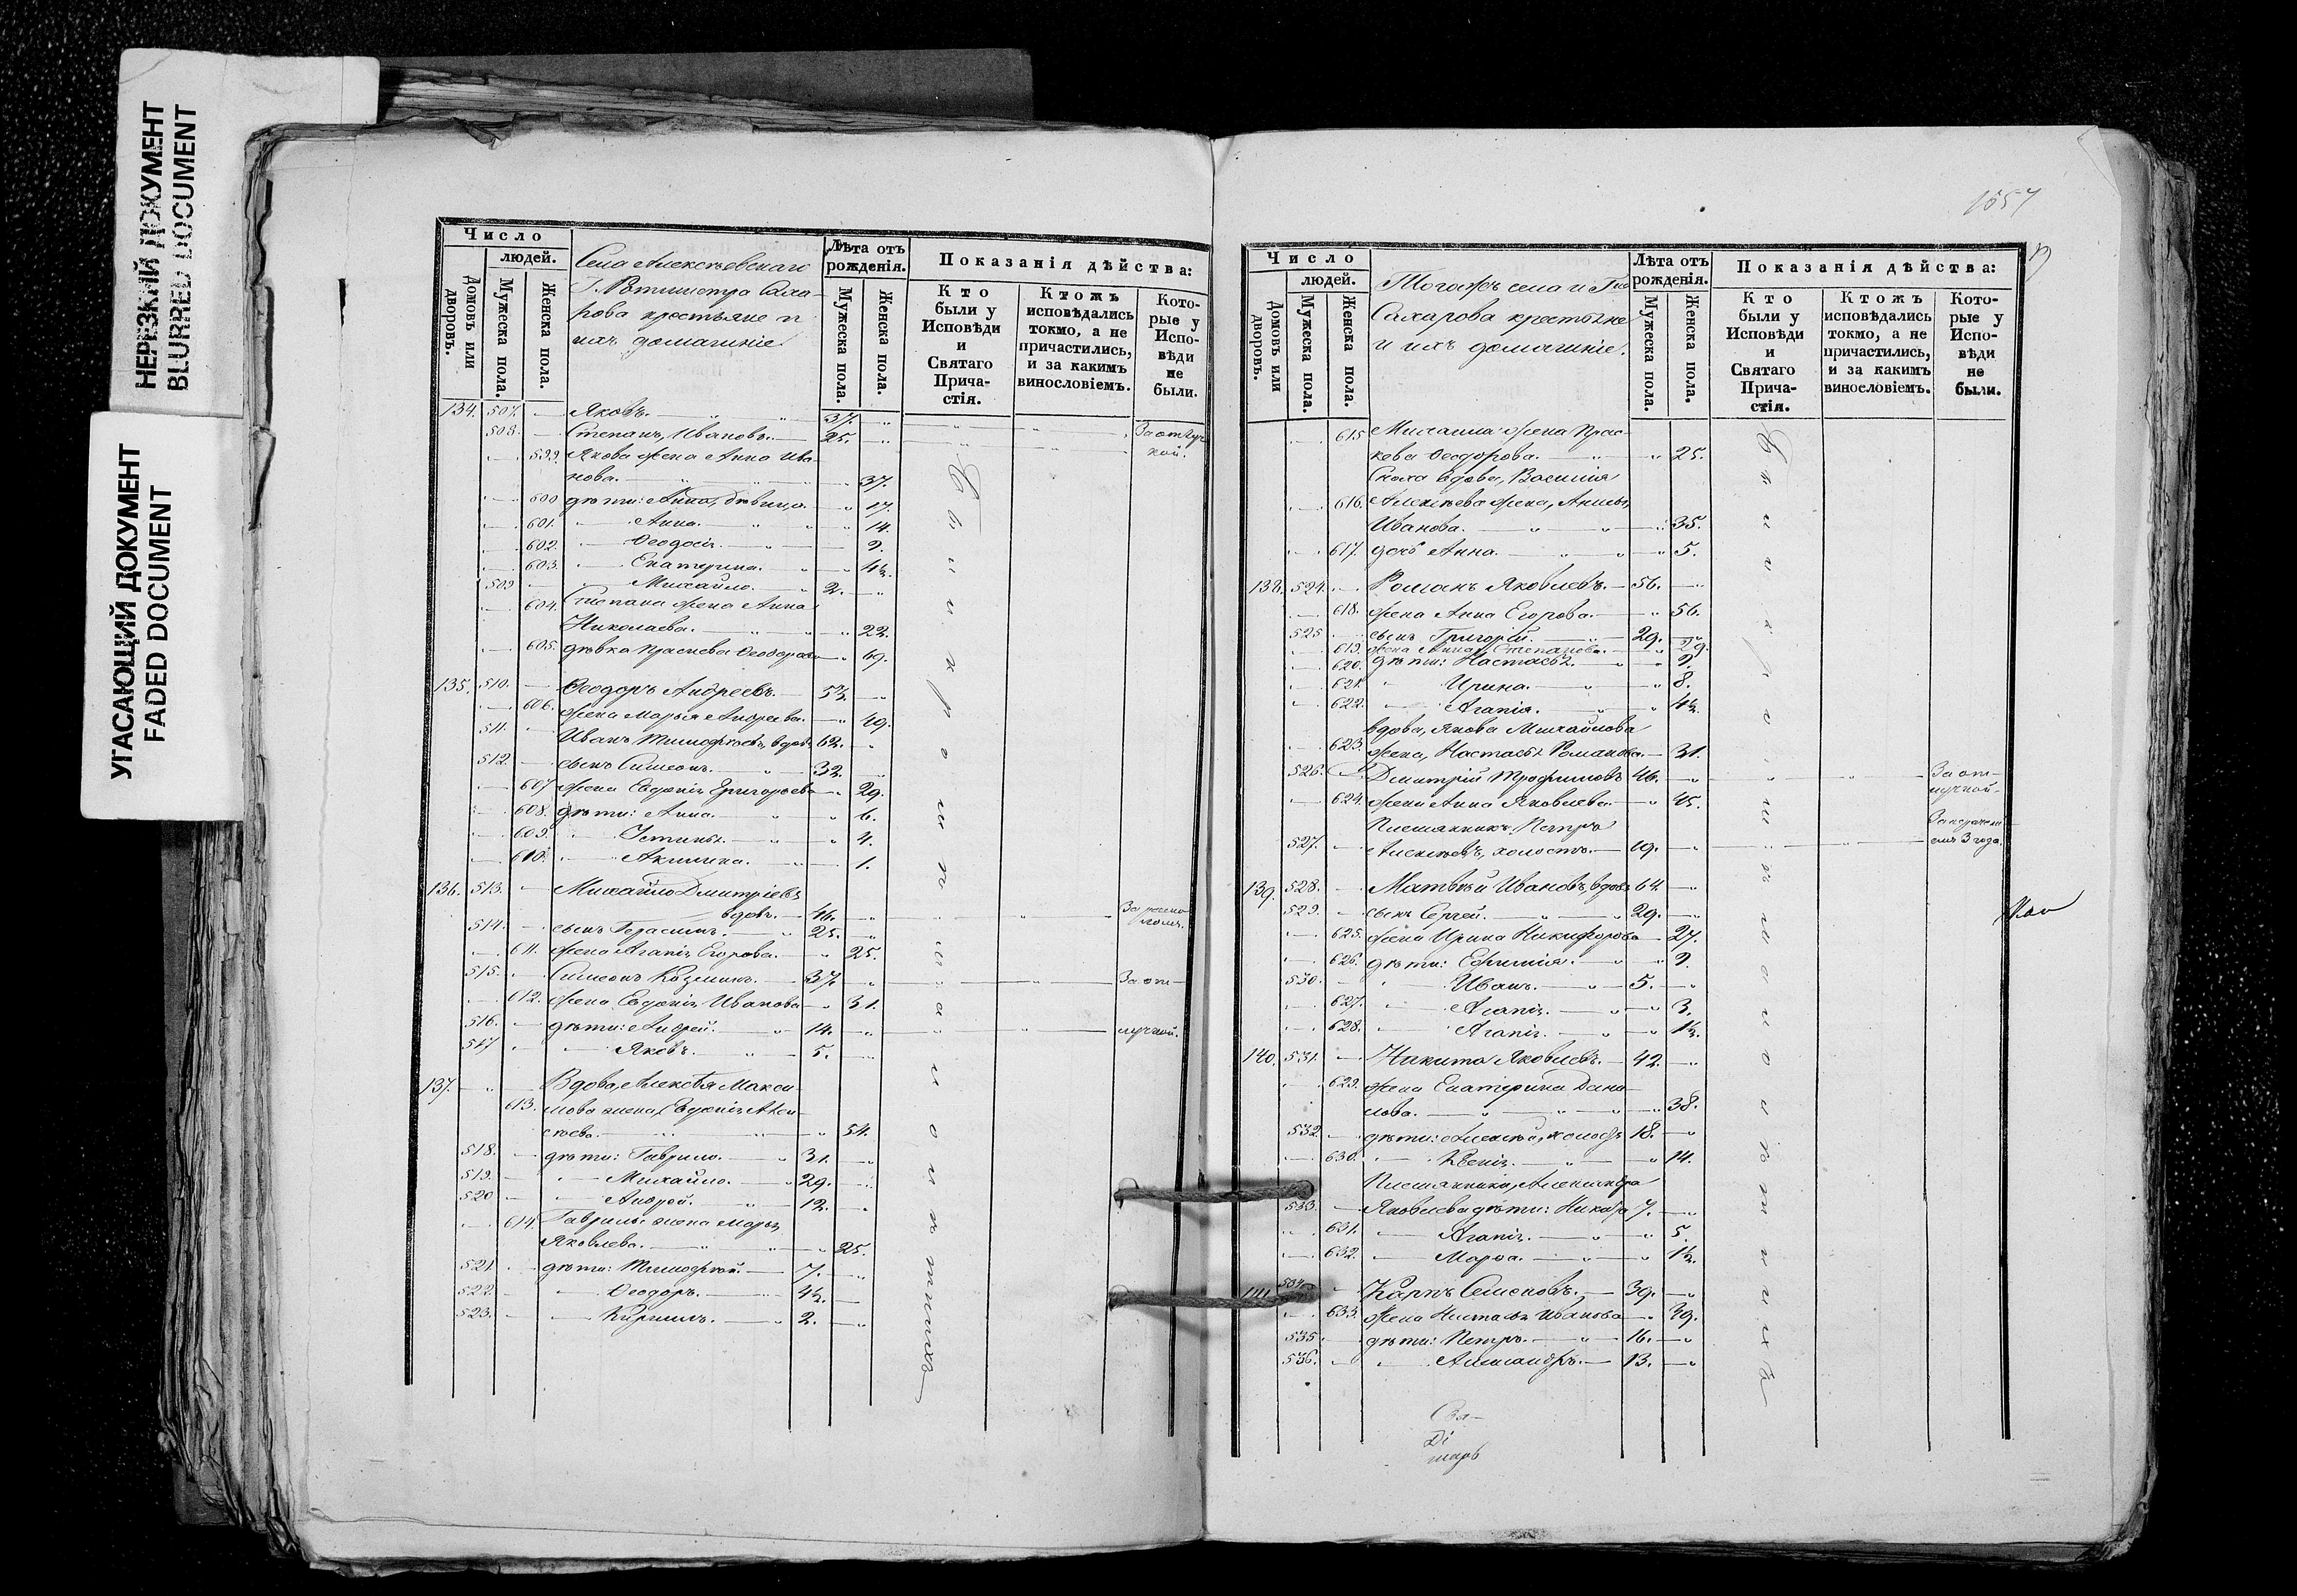 НЕРЕЗКИЙ ДОКУМЕНТ
BLURRED DOCUMENT
УГАСАЮЩИЙ ДОКУМЕНТ
FADED DOCUMENT
Число
людей.
Домовъ или дворовъ.
Мужеска пола.
Женска пола.
Села Алексѣевскаго
Г. Ротмистра Саха-
рова крестьяне и
ихъ домашніе
Лѣта отъ рожденія.
Мужеска пола.
Женска пола.
Показанія дѣйства:
Кто были у Исповѣди и Святаго Прича-стія.
Ктожъ исповѣдались токмо, а не причастились, и за какимъ винословіемъ.
Кото-рые у Испо-вѣди не были.
134. 507. Яковъ. 37.
508. Степанъ, Ивановы. 25. За отлуч
кой.
599. Якова жена Анна Ива
нова. 37.
600 дѣти: Анна, дѣвица. 17.
601. Анна. 14.
602. Ѳеодосія. 9.
603. Екатерина. 4½.
509 Михайло. 2.
604. Степана жена Анна
Николаева. 22.
605. дѣвка Прасковья Ѳеодорова 69.
135. 510. Ѳеодоръ Андреевъ. 53.
606. жена Марья Андреева. 49.
511. Иванъ Тимофѣевъ, вдовъ 62.
512. сынъ Симеонъ. 32.
607 жена Евдокія Григорьева 29.
608. дѣти: Анна. 6.
609. Устинья. 4.
610. Акилина. 1.
136. 513. Михайло Дмитріевъ
вдовъ. 46.
514. сынъ Герасимъ. 25.
611. жена Агапія Егорова. 25.
515. Симеонъ Козминъ. 37. За от-
612. жена Евдокія Иванова 31.
516. дѣти: Андрей. 14. лучкой.
517 Яковъ. 5.
137. Вдова, Алексѣя Макси
613. мова жена, Евдокія Алек
сѣева. 54.
518. дѣти: Гаврило. 31.
519. Михайло. 29.
520 Андрей. 12.
614. Гаврилы жена Марья
Яковлева. 25.
521. дѣти: Тимофей. 7.
522. Ѳеодоръ. 4½.
523. Кириллъ. 2.
1557
Число
людей.
Домовъ или дворовъ.
Мужеска пола.
Женска пола.
Тогожъ села и Г-на
Сахарова крестьяне
и ихъ домашніе.
Лѣта отъ рожденія.
Мужеска пола.
Женска пола.
Показанія дѣйства:
Кто были у Исповѣди и Святаго Прича-стія.
Ктожъ исповѣдались токмо, а не причастились, и за какимъ винословіемъ.
Кото-рые у Испо-вѣди не были.
615 Михаила жена Прас-
кева Ѳеодорова. 25.
Сноха вдова, Василія
616. Алексѣева жена,
Иванова. 35.
617. дочь Анна. 5.
138. 524. Романъ Яковлевъ. 56.
618. жена Анна Егорова. 56.
525 сынъ Григорій. 29.
619. жена Анна Степанова. 29.
620. дѣти: Настасья. 9.
621. Ирина. 8.
622. Агапія. 4½.
вдова, Якова Михайлова
623. жена, Настасья Романова. 31.
526. Дмитрій Трофимовъ 46. За от-
лучкой.
624. жена Анна Яковлева. 45.
Племянникъ, Петръ
527. Алексѣевъ, холостъ. 19.
139. 528. Матвѣй Ивановъ, вдовъ 64.
529. сынъ Сергей. 29.
625. жена Ирина Никифорова 27.
626. дѣти: Ефимія. 9.
530. Иванъ. 5.
627. Агапія. 3.
628. Агапія. 1½.
140. 531. Никита Яковлевъ. 42.
629. жена Екатерина Дани
лова. 38.
532. дѣти: Алексѣй, холостъ 18.
630. Ксенія. 14.
Племянники, Александра
533. Яковлева дѣти: Никита 7.
631. Агапія. 5.
632. Марѳа. 1½.
141 534. Карпъ Семеновъ. 39.
633. жена Настасья Иванова 39.
535 дѣти: Петръ. 16.
536. Александръ. 13.
Свя-
Ді